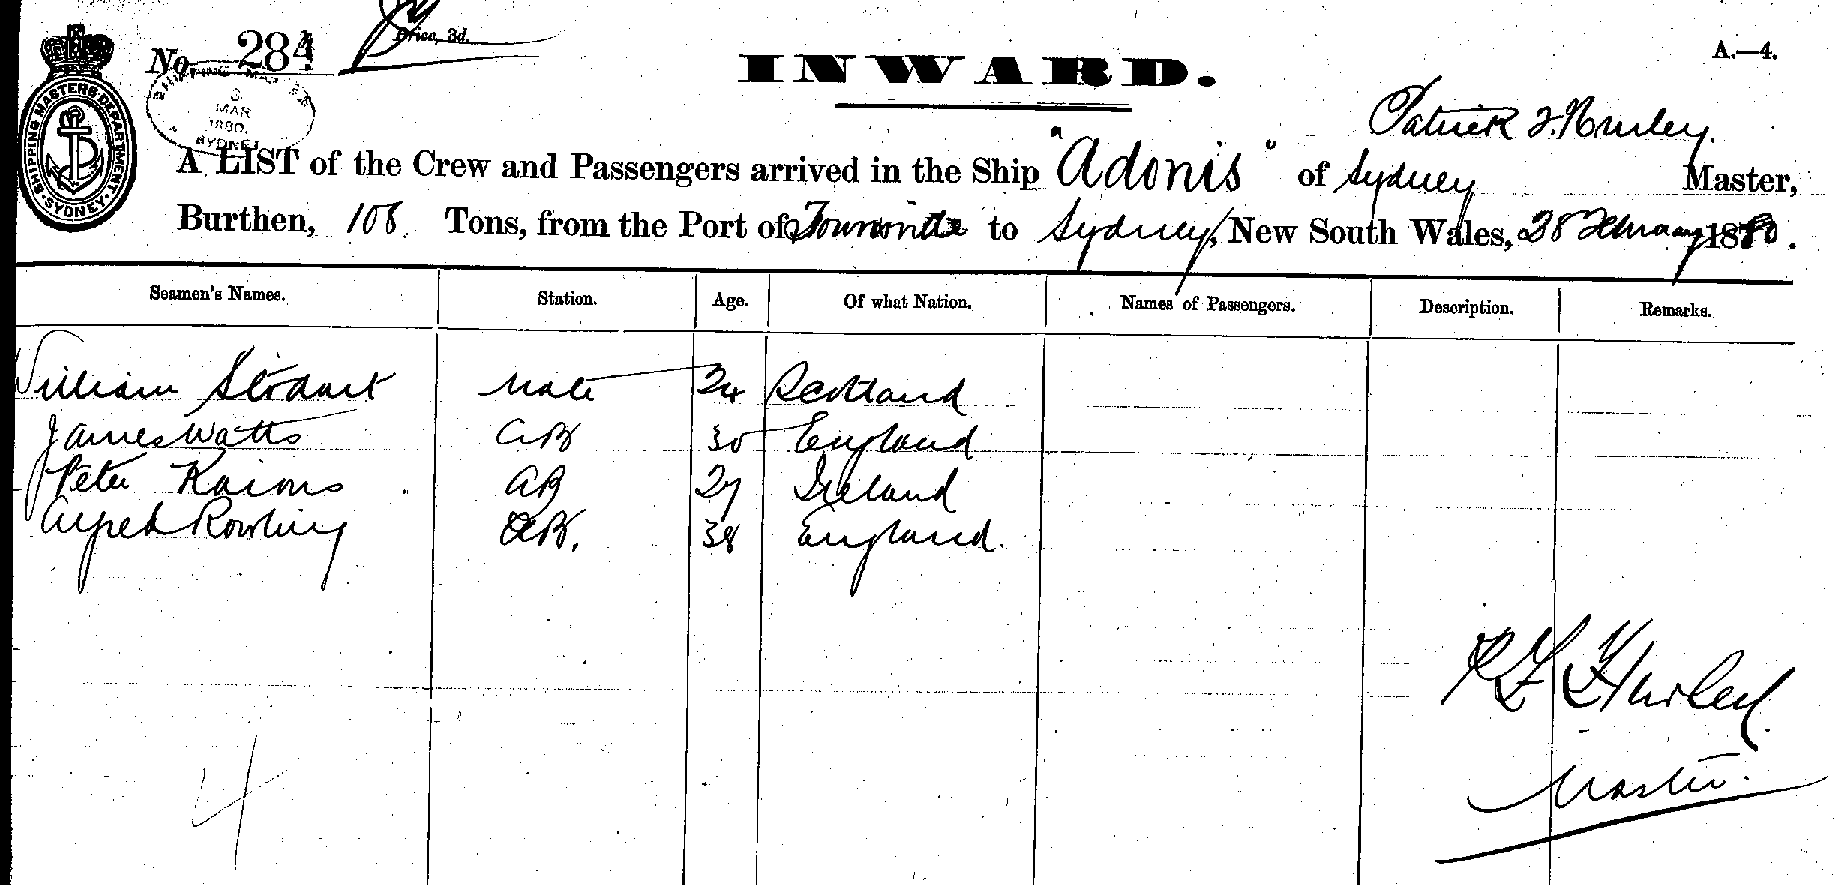 No. 284
Price, 3d.
A.—4.
INWARD.
SHIPPING MASTERS DEPARTMENT. SYDNEY.
3
MAR
1880.
SYDNEY
Patrick F. Hurley.
A LIST of the Crew and Passengers arrived in the Ship "Adonis" of Sydney Master,
Burthen, 108 Tons, from the Port of to Sydney, New South Wales, 28 February 1880.
Seamen's Names. Station. Age. Of what Nation. Names of Passengers. Description. Remarks.
William Stodart Mate 34 Scotland
James Watts AB 30 England
Peter AB 27 Ireland
Alfred Rowling AB. 38 England.
P F Hurley
Master.
4